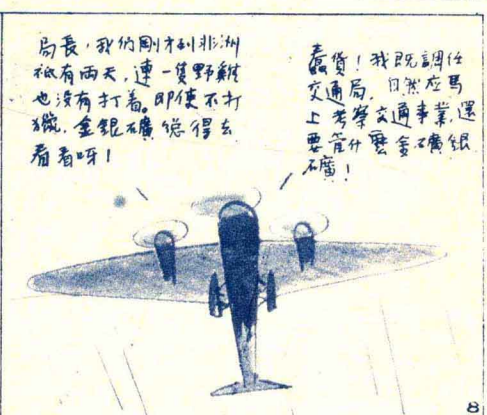 局長，我們剛才到非洲
祗有兩天，連一隻野雞
也没有打着。即使不打
獵，金銀礦總得去
看看呀！
蠢貨！我既調任
交通局，自然应馬
上考察交通事業，還
要管什麼金礦銀
礦！
8